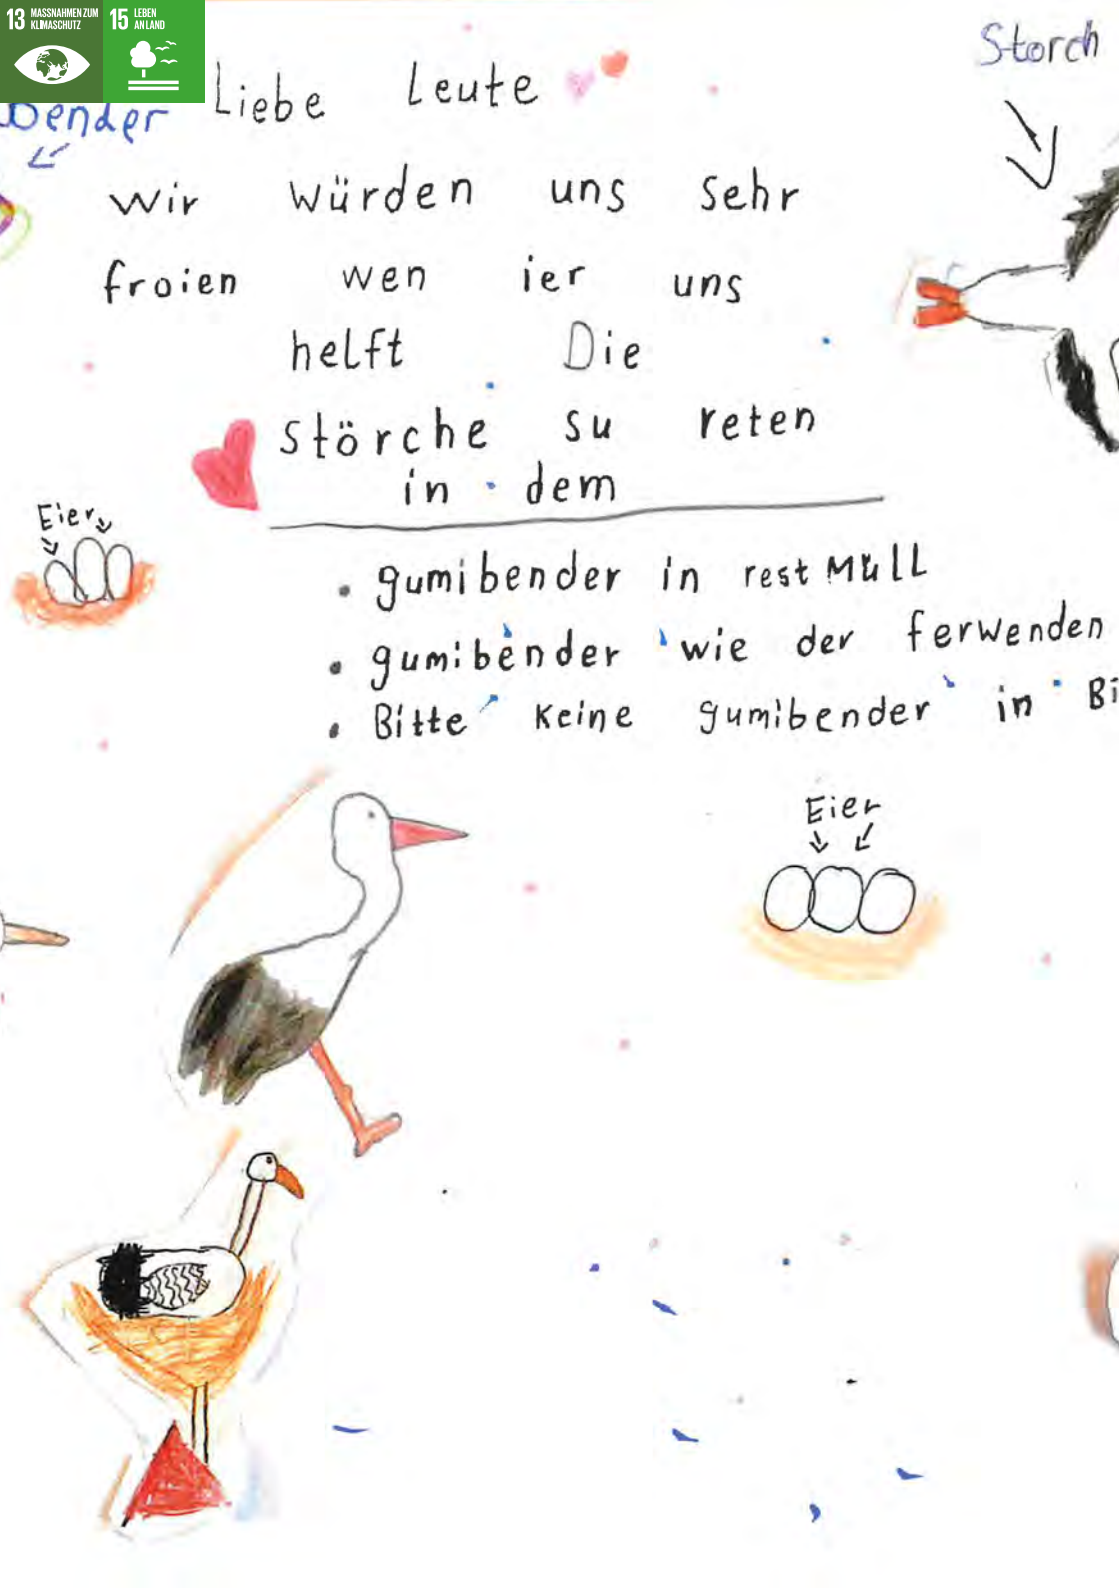 13 MASSNAHMEN ZUM
KLIMASCHUTZ
15 LEBEN
AN LAND
Storch
bender
Liebe Leute
Wir würden uns sehr
froien wen ier uns
helft Die
Störche su reten
in dem
Eier
• gumibender in rest Müll
• gumibender wie der ferwenden
• Bitte keine gumibender in Bi
Eier